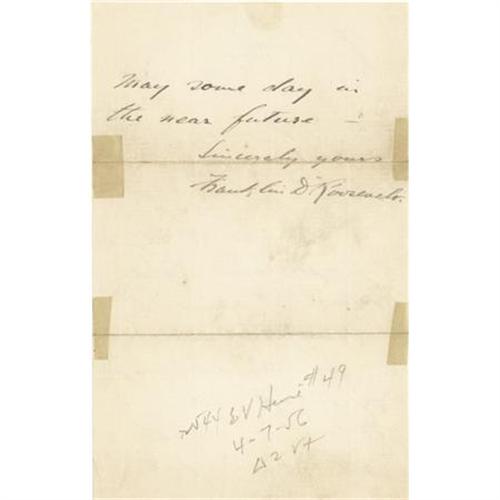 may some day in
the near future –
Sincerely yours
Franklin D Roosevelt.
#49
4-7-56